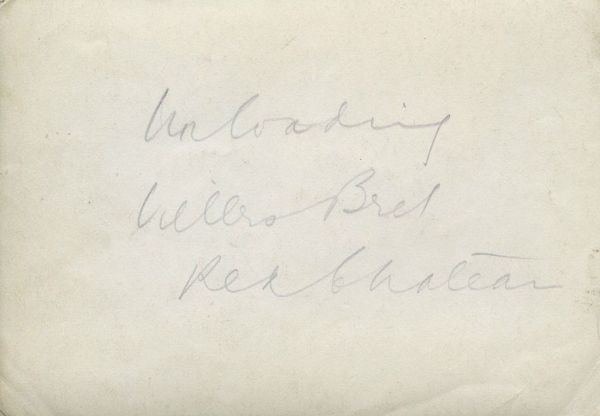 Unloading
Villers Bret
Red Chateau